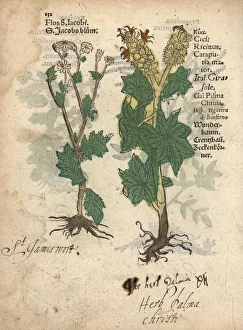 Flos S. Jacobi.
S. Jacobs blům.
Kiki.
Cici:
Ricinum,
Carapu-
tia ma-
ior.
Ital. Gira
sole.
Gal. Palma
Christi.
Wunder-
baum.
Creutzbaum.
Zeckenkör-
ner.
St Jameswort.
The herb palma
Herb palma
christi